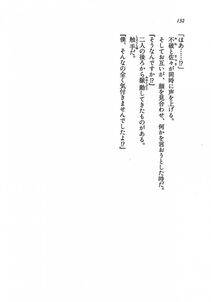 132
「はあ……!?」
不破と佐々が同時に声を上げる。
そしてお互いが、顔を見合わせ、何かを言おうとした時だ。
「そうなんですか!?」
二人の後ろから蠢動してきたものがある。
触手だ。
「僕、そんなの全く気付きませんでしたよ!?」